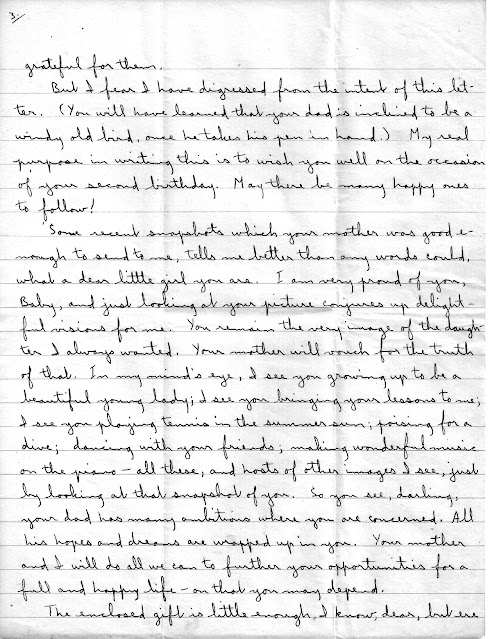 3.
grateful for them.
But I fear I have digressed from the intent of this let-
ter. (You will have learned that your dad is inclined to be a
windy old bird, once he takes his pen in hand.) My real
purpose in writing this is to wish you well on the occasion
of your second birthday. May there be many happy ones
to follow!
Some recent snapshots which your mother was good e-
nough to send to me, tells me better than any words could,
what a dear little girl you are. I am very proud of you,
Baby, and just looking at your picture conjures up delight-
ful visions for me. You remain the very image of the daugh-
ter I always wanted. Your mother will vouch for the truth
of that. In my mind's eye, I see you growing up to be a
beautiful young lady; I see you bringing your lessons to me;
I see you playing tennis in the summer sun; poising for a
dive; dancing with your friends; making wonderful music
on the piano – all these, and hosts of other images I see, just
by looking at that snapshot of you. So you see, darling,
your dad has many ambitions where you are concerned. All
his hopes and dreams are wrapped up in you. Your mother
and I will do all we can to further your opportunities for a
full and happy life – on that you may depend.
The enclosed gift is little enough, I know, dear, but ere